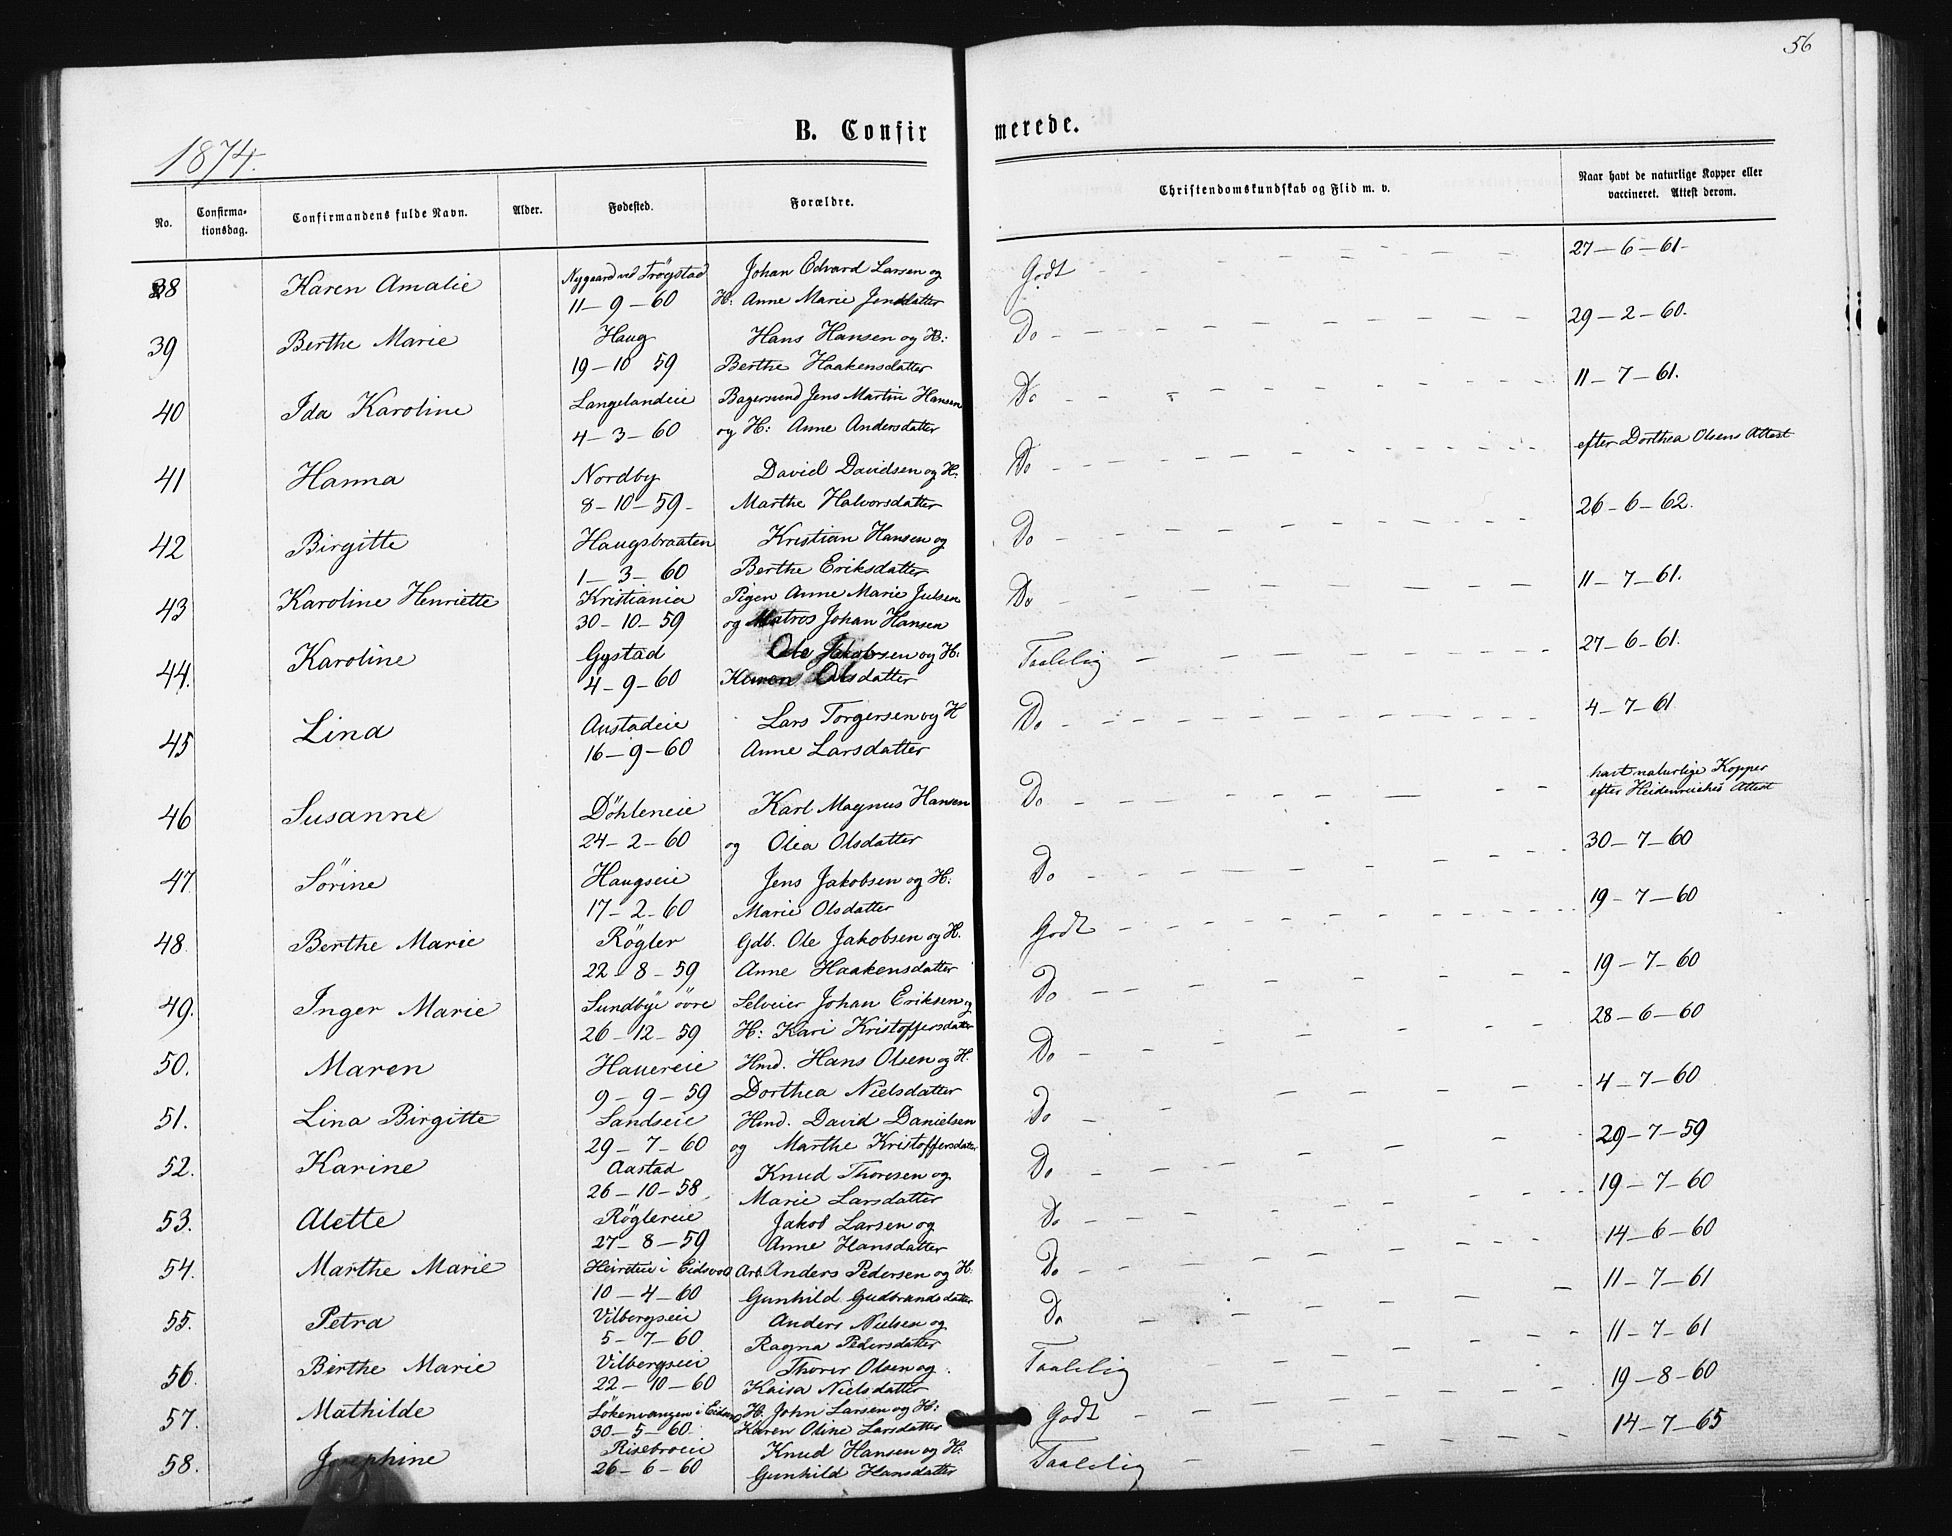 56
1874.
B. Confirmerede.
No. Confirma-tionsdag. Confirmandens fulde Navn. Alder. Fødested. Forældre. Christendomskundskab og Flid m. v. Naar havt de naturlige Kopper eller vaccineret. Attest derom.
38 Karen Amalie Nygaard ved Trögstad Johan Edvard Larsen og Godt 27-6-61-
11-9-60 H: Anne Marie Jensdatter
39 Berthe Marie Haug Hans Hansen og H: Do 29-2-60.
19-10 59 Berthe Haakensdatter
40 Ida Karoline Langelandeie Bagersvend Jens Martin Hansen Do 11-7-61.
4-3-60 og H: Anne Andersdatter
41 Hanna Nordby David Davidsen og H: Do efter Dorthea Olsens Attest
8-10-59- Marthe Halvorsdatter
42 Birgitte Haugsbraaten Kristian Hansen og Do 26-6-62.
1-3-60 Berthe Eriksdatter
43 Karoline Henriette Kristiania Pigen Anne Marie Julsen Do 11-7-61.
30-10-59 og Matros Johan Hansen
44. Karoline Gystad Ole Jakobsen og H: Taalelig 27-6-61.
4-9-60 Karen Olsdatter
45 Lina Austadeie Lars Torgersen og H Do 4-7-61
16-9-60 Anne Larsdatter
46 Susanne Döhleneie Karl Magnus Hansen Do havt naturlige Kopper
efter Heidenreichs Attest
24-2-60 og Olea Olsdatter
47 Sörine Haugseie Jens Jakobsen og H: Do 30-7-60
17-2-60 Marie Olsdatter
48 Berthe Marie Rögler Gdb. Ole Jakobsen og H. Godt 19-7-60
22-8-59 Anne Haakensdatter
49. Inger Marie Sundbye övre Selveier Johan Eriksen og Do 19-7-60
26-12-59 H: Kari Kristoffersdatter
50. Maren Hauereie Hmd. Hans Olsen og H. Do 28-6-60
9-9-59 Dorthea Nielsdatter
51. Lina Birgitte Sandseie Hmd. David Danielsen Do 4-7-60
29-7-60 og Marthe Kristoffersdatter
52. Karine Aastad Knud Thoresen og Do 29-7-59
26-10-58 Marie Larsdatter
53. Alette Röglereie Jakob Larsen og Do 19-7-60
27-8-59 Anne Hansdatter
54. Marthe Marie i Eidsvold Arb. Anders Pedersen og H. Do 14-6-60
10-4-60 Gunhild Gudbrandsdatter
55. Petra Vilbergseie Anders Nielsen og Do 11-7-61
5-7-60 Ragna Pedersdatter
56. Birthe Marie Vilbergseie Thorer Olsen og Taalelig 11-7-61
22-10-60 Kaisa Nielsdatter
57. Mathilde Lökenvangen i Eidsvold H. John Larsen og H: Godt 19-8-60
30-5-60 Karen Oline Larsdatter
58. Josephine Risebroeie Knud Hansen og H: Taalelig 14-7-65
26-6-60 Gunhild Hansdatter